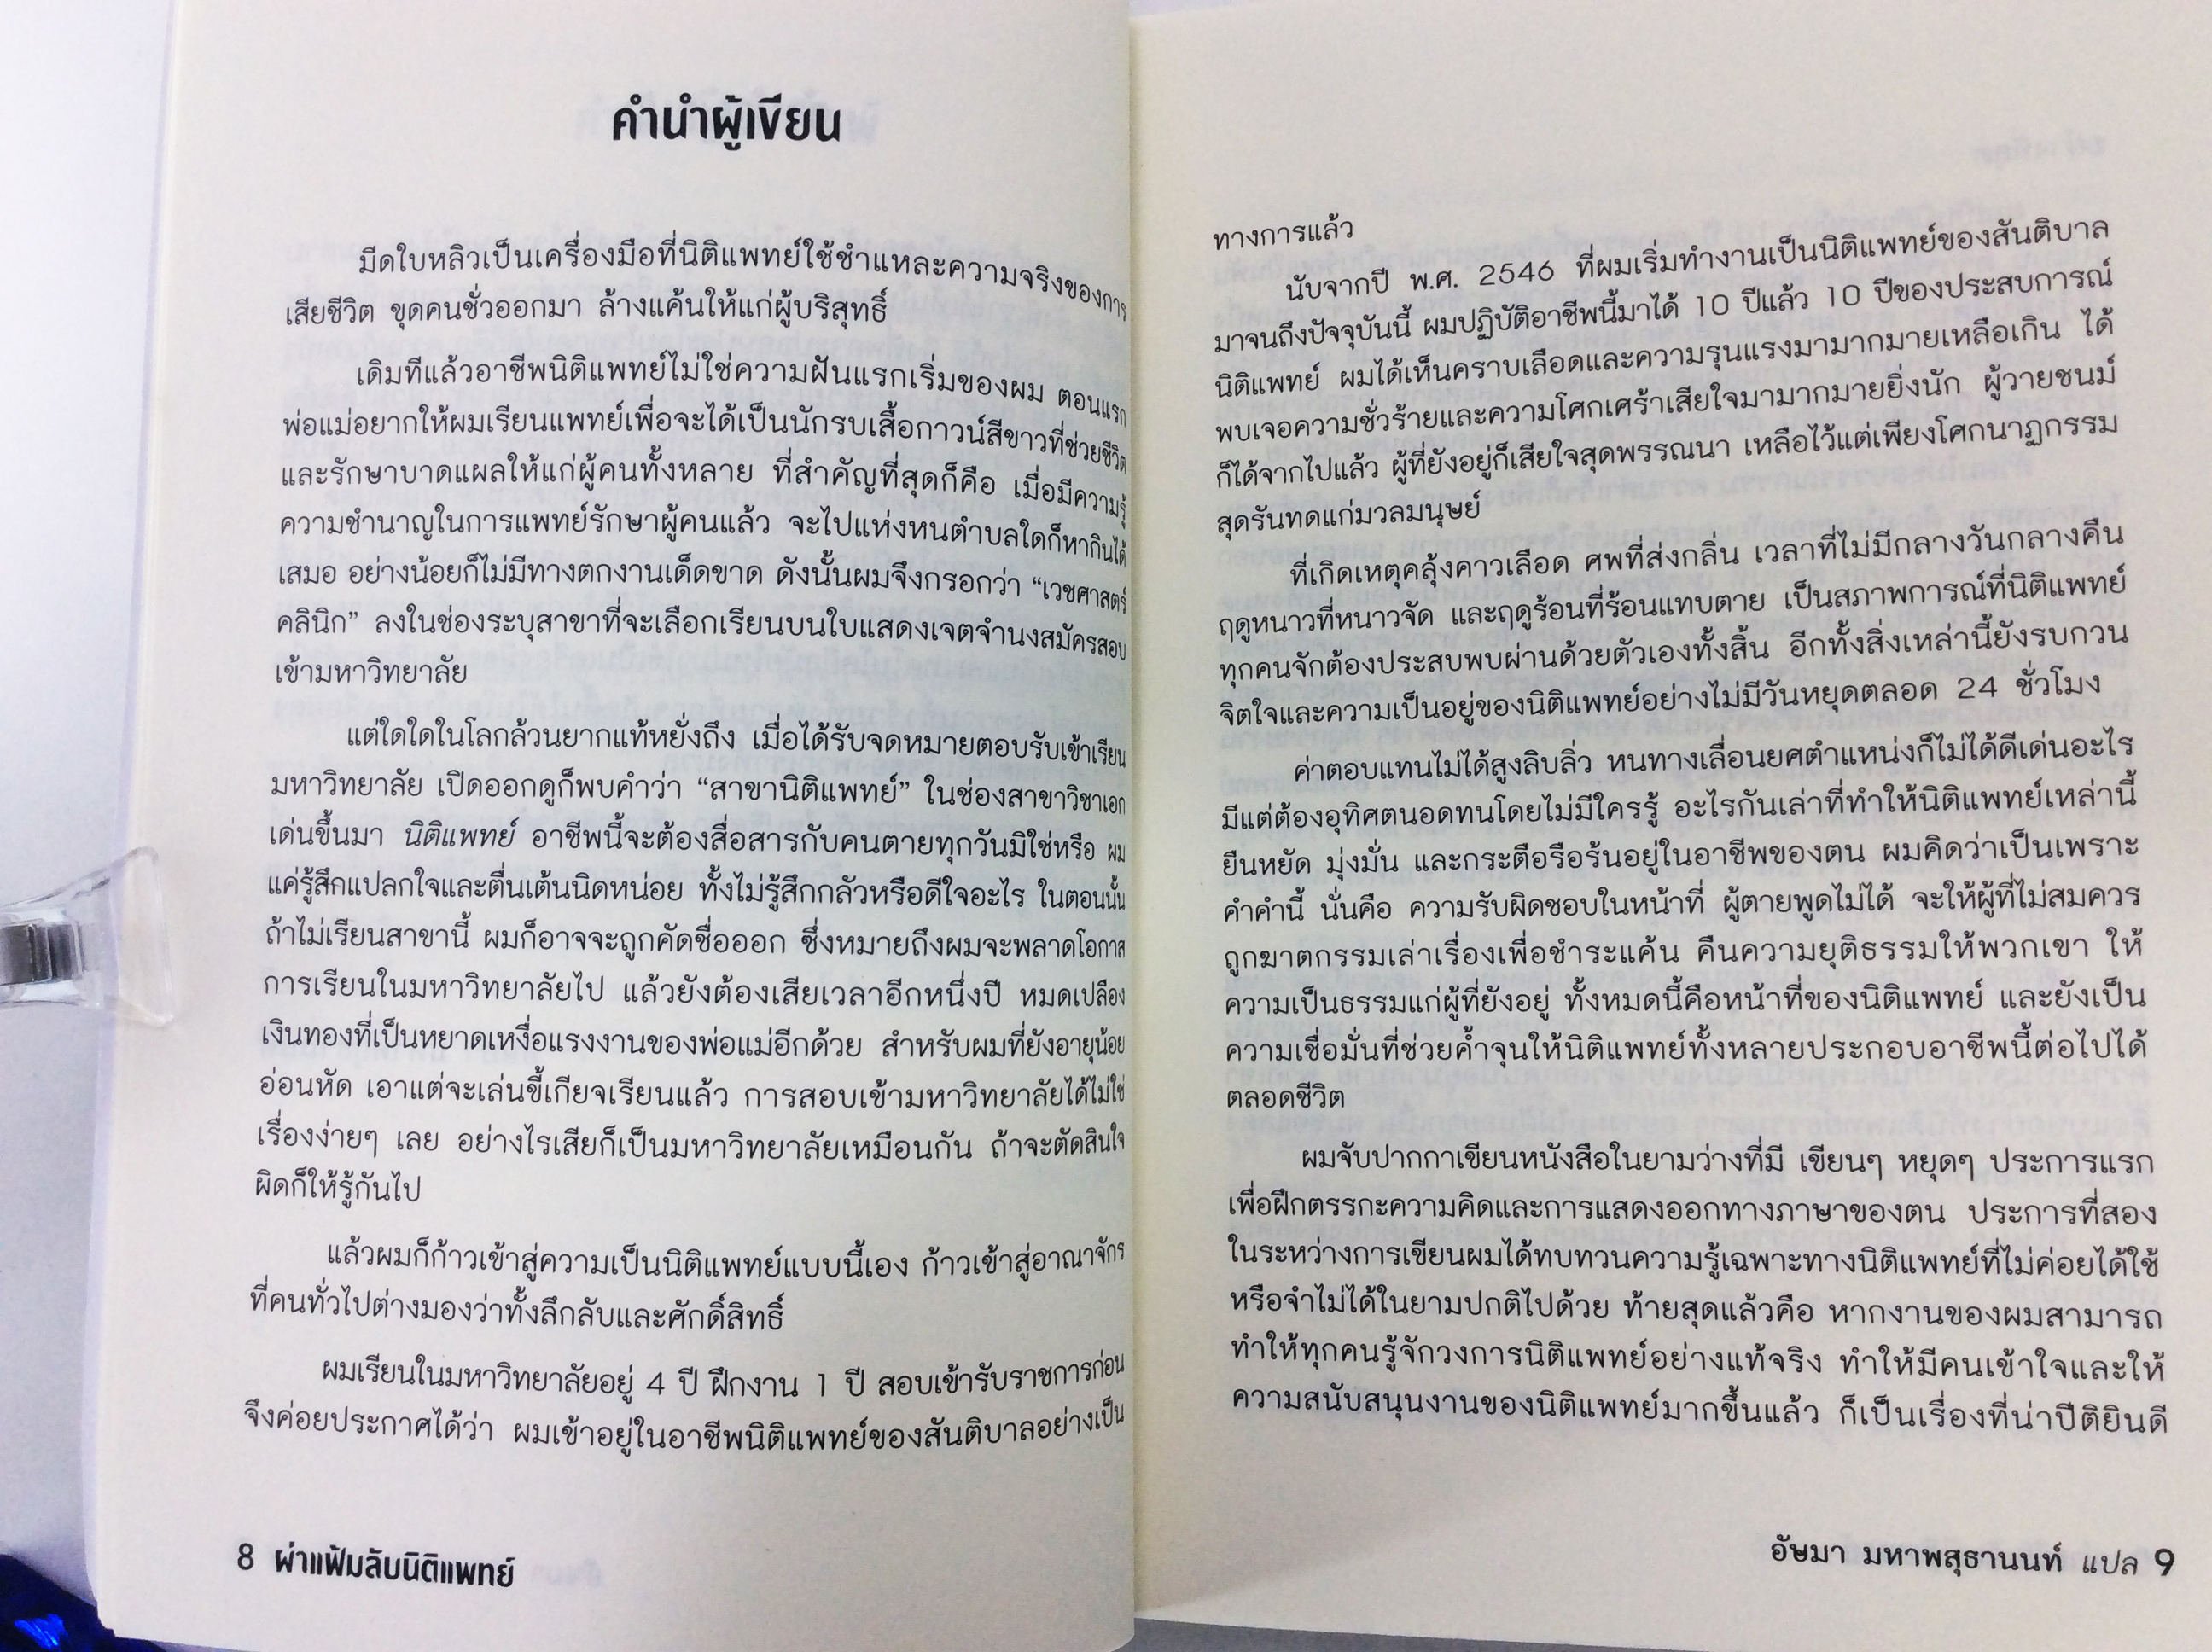 คำนำผู้เขียน
มีดใบหลิวเป็นเครื่องมือที่นิติแพทย์ใช้ชำแหละความจริงของการ
เสียชีวิต ขุดคนชั่วออกมา ล้างแค้นให้แก่ผู้บริสุทธิ์
เดิมทีแล้วอาชีพนิติแพทย์ไม่ใช่ความฝันแรกเริ่มของผม ตอนแรก
พ่อแม่อยากให้ผมเรียนแพทย์เพื่อจะได้เป็นนักรบเสื้อกาวน์สีขาวที่ช่วยชีวิต
และรักษาบาดแผลให้แก่ผู้คนทั้งหลาย ที่สำคัญที่สุดก็คือ เมื่อมีความรู้
ความชำนาญในการแพทย์รักษาผู้คนแล้ว จะไปแห่งหนตำบลใดก็หากินได้
เสมอ อย่างน้อยก็ไม่มีทางตกงานเด็ดขาด ดังนั้นผมจึงกรอกว่า “เวชศาสตร์
คลินิก” ลงในช่องระบุสาขาที่จะเลือกเรียนบนใบแสดงเจตจำนงสมัครสอบ
เข้ามหาวิทยาลัย
แต่ใดใดในโลกล้วนยากแท้หยั่งถึง เมื่อได้รับจดหมายตอบรับเข้าเรียน
มหาวิทยาลัย เปิดออกดูก็พบคำว่า “สาขานิติแพทย์” ในช่องสาขาวิชาเอก
เด่นขึ้นมา นิติแพทย์ อาชีพนี้จะต้องสื่อสารกับคนตายทุกวันมิใช่หรือ ผม
แค่รู้สึกแปลกใจและตื่นเต้นนิดหน่อย ทั้งไม่รู้สึกกลัวหรือดีใจอะไร ในตอนนั้น
ถ้าไม่เรียนสาขานี้ ผมก็อาจจะถูกคัดชื่อออก ซึ่งหมายถึงผมจะพลาดโอกาส
การเรียนในมหาวิทยาลัยไป แล้วยังต้องเสียเวลาอีกหนึ่งปี หมดเปลือง
เงินทองที่เป็นหยาดเหงื่อแรงงานของพ่อแม่อีกด้วย สำหรับผมที่ยังอายุน้อย
อ่อนหัด เอาแต่จะเล่นขี้เกียจเรียนแล้ว การสอบเข้ามหาวิทยาลัยได้ไม่ใช่
เรื่องง่ายๆ เลย อย่างไรเสียก็เป็นมหาวิทยาลัยเหมือนกัน ถ้าจะตัดสินใจ
ผิดก็ให้รู้กันไป
แล้วผมก็ก้าวเข้าสู่ความเป็นนิติแพทย์แบบนี้เอง ก้าวเข้าสู่อาณาจักร
ที่คนทั่วไปต่างมองว่าทั้งลึกลับและศักดิ์สิทธิ์
ผมเรียนในมหาวิทยาลัยอยู่ 4 ปี ฝึกงาน 1 ปี สอบเข้ารับราชการก่อน
จึงค่อยประกาศได้ว่า ผมเข้าอยู่ในอาชีพนิติแพทย์ของสันติบาลอย่างเป็น
8 ผ่าแฟ้มลับนิติแพทย์
ทางการแล้ว
นับจากปี พ.ศ. 2546 ที่ผมเริ่มทำงานเป็นนิติแพทย์ของสันติบาล
มาจนถึงปัจจุบันนี้ ผมปฏิบัติอาชีพนี้มาได้ 10 ปีแล้ว 10 ปีของประสบการณ์
นิติแพทย์ ผมได้เห็นคราบเลือดและความรุนแรงมามากมายเหลือเกิน ได้
พบเจอความชั่วร้ายและความโศกเศร้าเสียใจมามากมายยิ่งนัก ผู้วายชนม์
ก็ได้จากไปแล้ว ผู้ที่ยังอยู่ก็เสียใจสุดพรรณนา เหลือไว้แต่เพียงโศกนาฏกรรม
สุดรันทดแก่มวลมนุษย์
ที่เกิดเหตุคลุ้งคาวเลือด ศพที่ส่งกลิ่น เวลาที่ไม่มีกลางวันกลางคืน
ฤดูหนาวที่หนาวจัด และฤดูร้อนที่ร้อนแทบตาย เป็นสภาพการณ์ที่นิติแพทย์
ทุกคนจักต้องประสบพบผ่านด้วยตัวเองทั้งสิ้น อีกทั้งสิ่งเหล่านี้ยังรบกวน
จิตใจและความเป็นอยู่ของนิติแพทย์อย่างไม่มีวันหยุดตลอด 24 ชั่วโมง
ค่าตอบแทนไม่ได้สูงลิบลิ่ว หนทางเลื่อนยศตำแหน่งก็ไม่ได้ดีเด่นอะไร
มีแต่ต้องอุทิศตนอดทนโดยไม่มีใครรู้ อะไรกันเล่าที่ทำให้นิติแพทย์เหล่านี้
ยืนหยัด มุ่งมั่น และกระตือรือร้นอยู่ในอาชีพของตน ผมคิดว่าเป็นเพราะ
คำคำนี้ นั่นคือ ความรับผิดชอบในหน้าที่ ผู้ตายพูดไม่ได้ จะให้ผู้ที่ไม่สมควร
ถูกฆาตกรรมเล่าเรื่องเพื่อชำระแค้น คืนความยุติธรรมให้พวกเขา ให้
ความเป็นธรรมแก่ผู้ที่ยังอยู่ ทั้งหมดนี้คือหน้าที่ของนิติแพทย์ และยังเป็น
ความเชื่อมั่นที่ช่วยค้ำจุนให้นิติแพทย์ทั้งหลายประกอบอาชีพนี้ต่อไปได้
ตลอดชีวิต
ผมจับปากกาเขียนหนังสือในยามว่างที่มี เขียนๆ หยุดๆ ประการแรก
เพื่อฝึกตรรกะความคิดและการแสดงออกทางภาษาของตน ประการที่สอง
ในระหว่างการเขียนผมได้ทบทวนความรู้เฉพาะทางนิติแพทย์ที่ไม่ค่อยได้ใช้
หรือจำไม่ได้ในยามปกติไปด้วย ท้ายสุดแล้วคือ หากงานของผมสามารถ
ทำให้ทุกคนรู้จักวงการนิติแพทย์อย่างแท้จริง ทำให้มีคนเข้าใจและให้
ความสนับสนุนงานของนิติแพทย์มากขึ้นแล้ว ก็เป็นเรื่องที่น่าปีติยินดี
อัษมา มหาพสุธานนท์ แปล 9